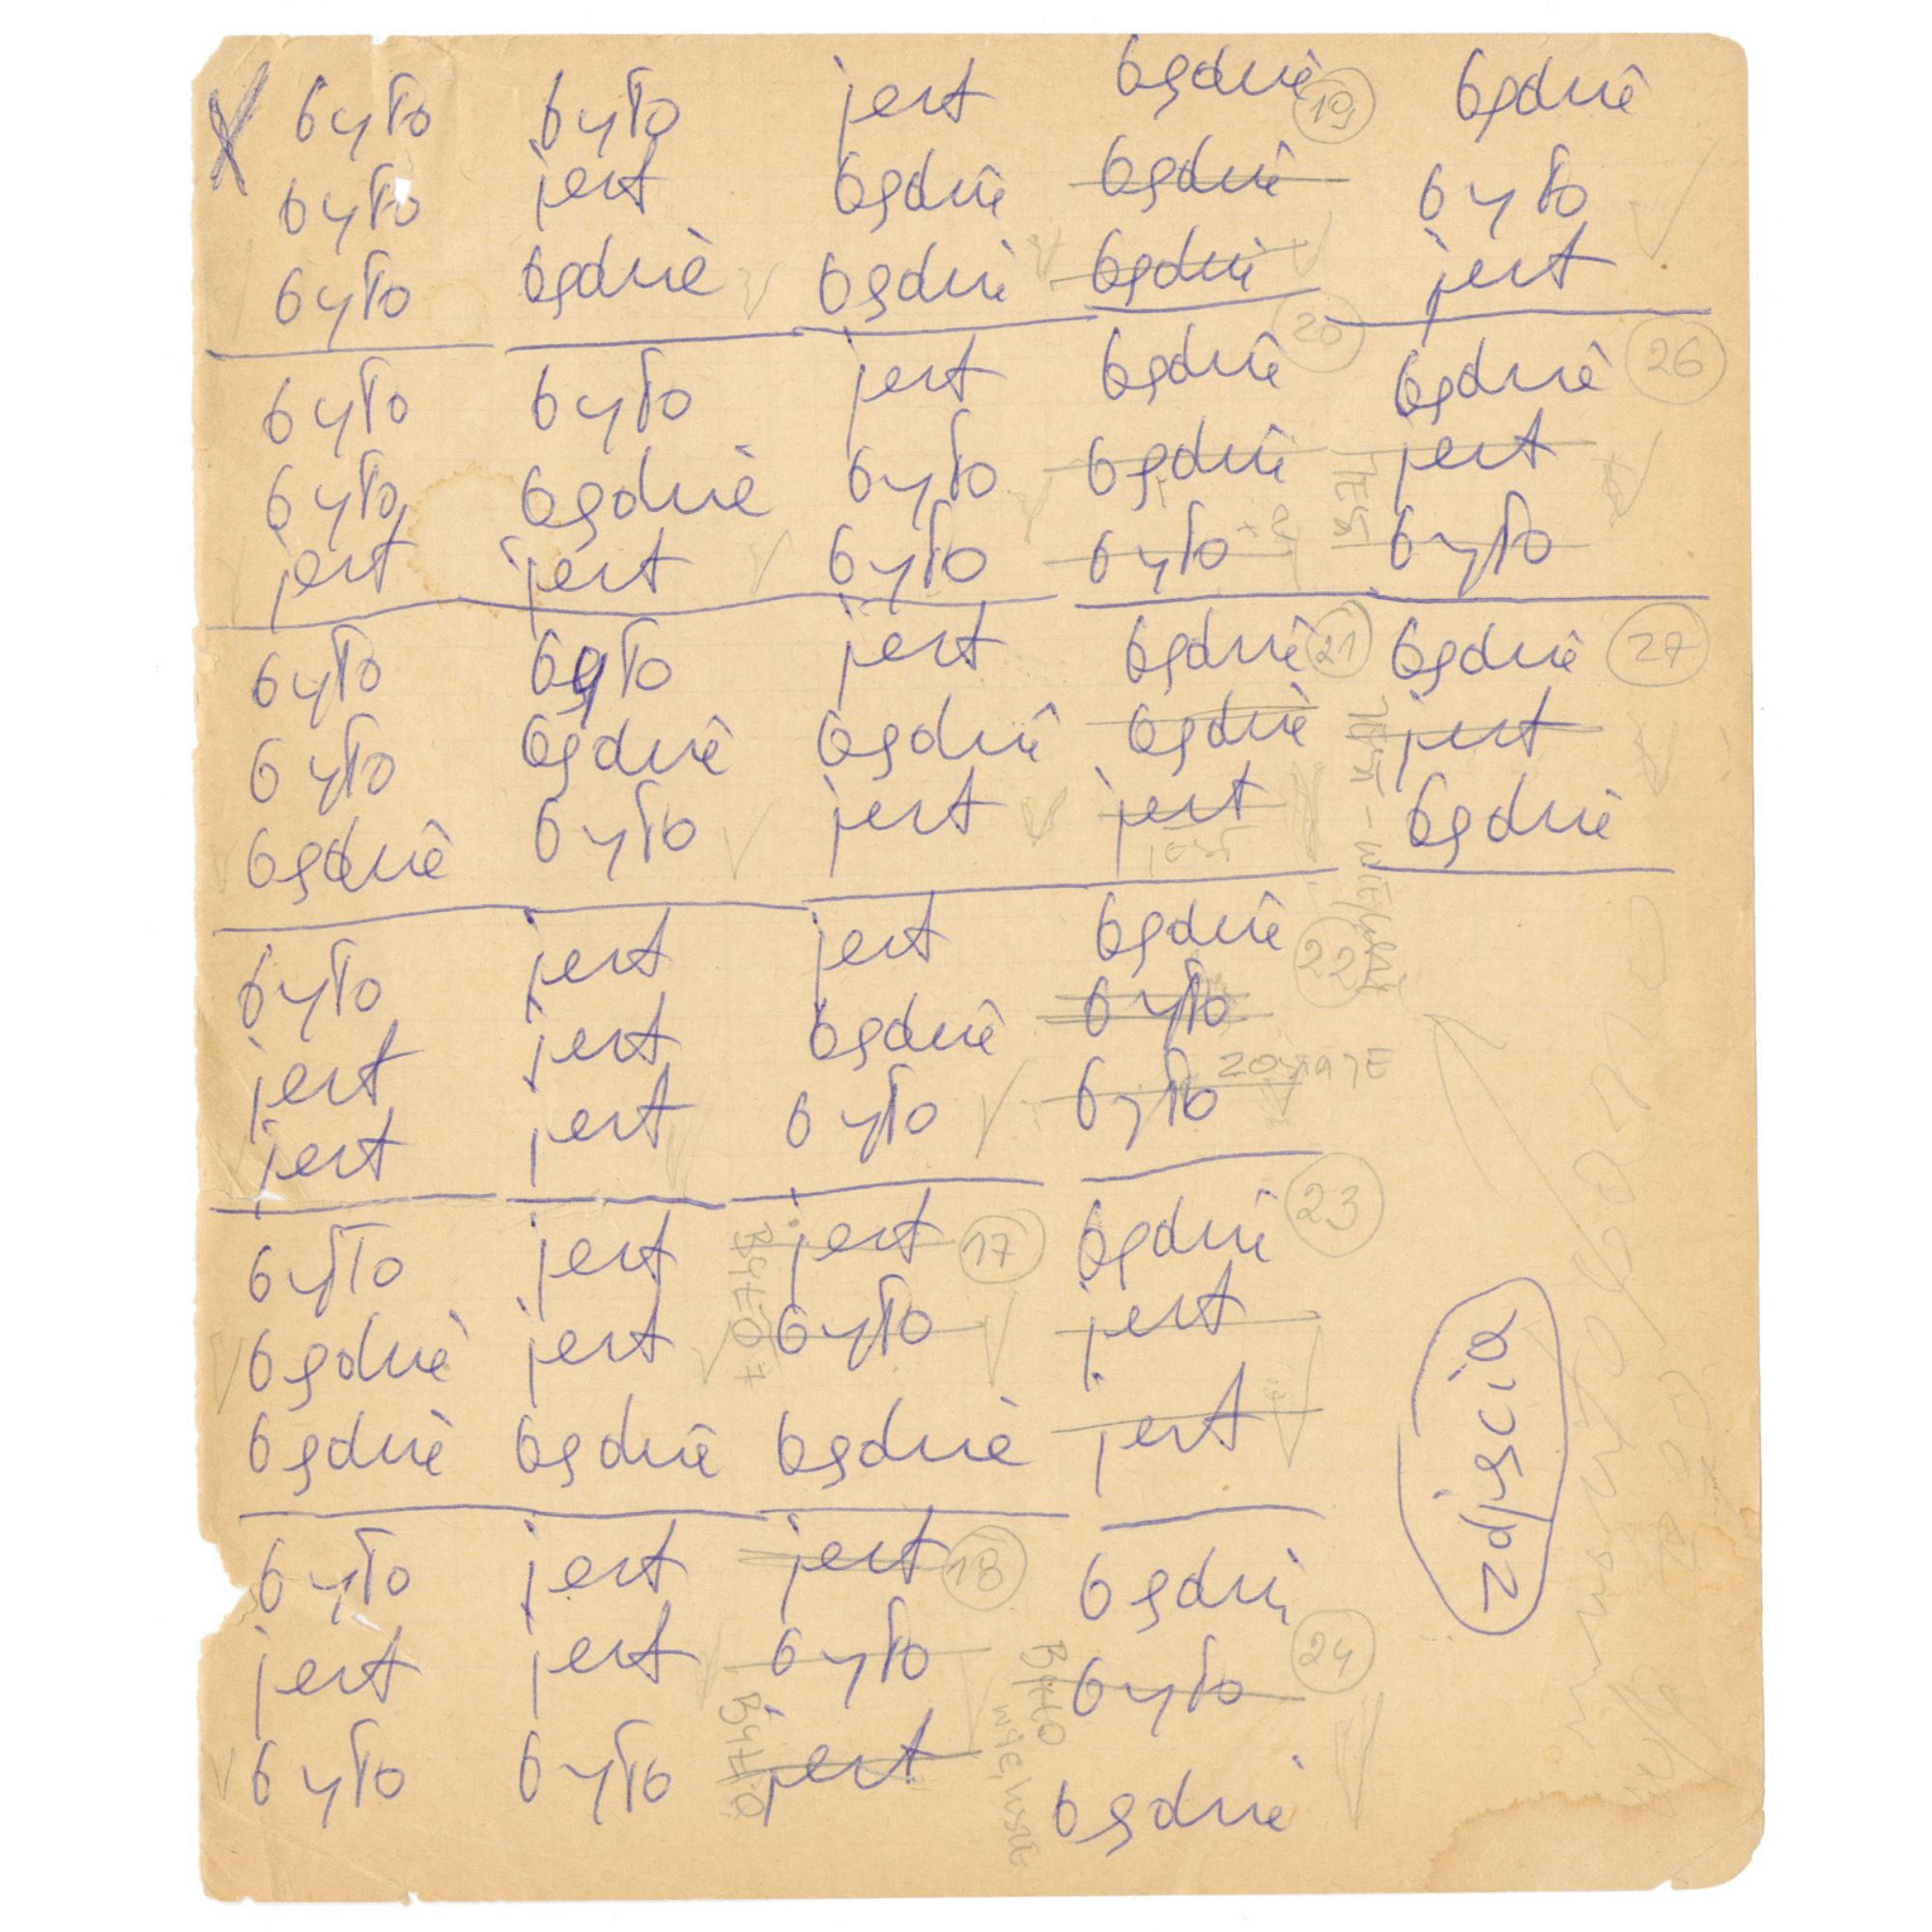 X było
było
było
było
było
jest
było
było
będzie
było
jest
jest
było
będzie
będzie
było
jest
było
było
jest
będzie
było
będzie
jest
było
będzie
było
jest
jest
jest
jest
jest
będzie
jest
jest
było
jest
będzie
będzie
jest
było
było
jest
będzie
jest
jest
będzie
było
jest 17
było
będzie
BYŁO
jest 18
było
jest
BYŁO
będzie 19
będzie
będzie
będzie 20
będzie
było
będzie 21
będzie
jest
jest
będzie 22
było
było
ZOSTAJE
będzie 23
jest
jest
będzie
było 24
będzie
BYŁO
będzie
było
jest
będzie 26
jest
było
JEST
będzie 27
jest
będzie
zdjęcia